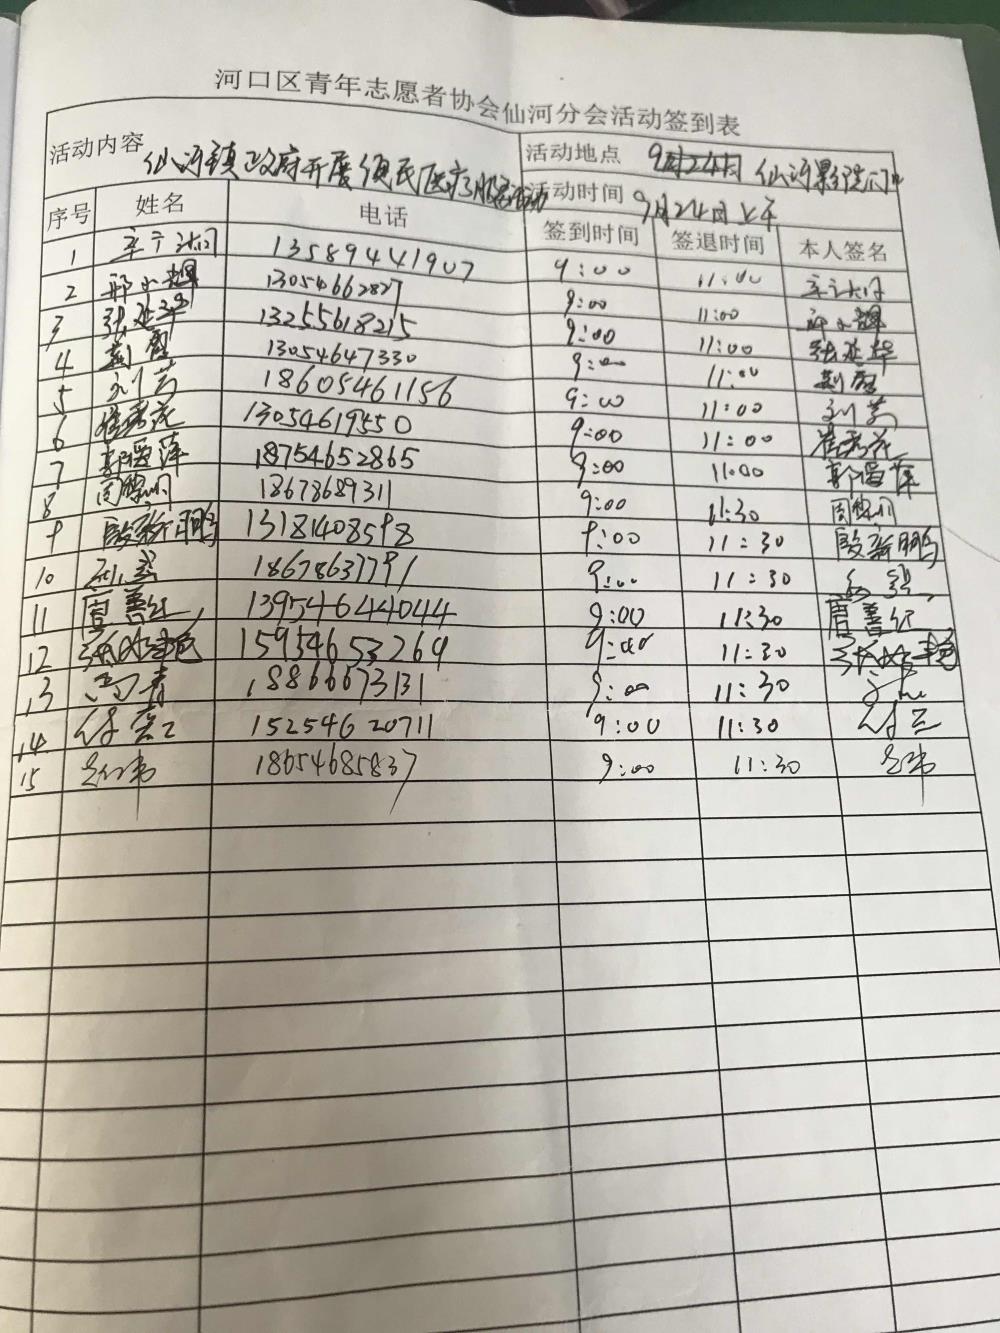 河口区青年志愿者协会仙河分会活动签到表
活动内容 仙河镇政府开展便民医疗服务活动
活动地点 仙河影院门口
活动时间 9月24日上午
序号 姓名 电话 签到时间 签退时间 本人签名
1 13589441907 9:00 11:00
2 邢小辉 13054662827 9:00 11:00 邢小辉
3 张延华 13255618215 9:00 11:00 张延华
4 13054647330 9:00 11:00
5 刘芳 18605461156 9:00 11:00 刘芳
6 崔秀花 13054619550 9:00 11:00 崔秀花
7 郭爱萍 18754652865 9:00 11:00 郭爱萍
8 18678689311 9:00 11:30
9 殷新鹏 13181408598 9:00 11:30 殷新鹏
10 18678637791 9:00 11:30
11 唐善红 13954644044 9:00 11:30 唐善红
12 15954653264 9:00 11:30
13 冯青 18866673131 9:00 11:30
14 15254620711 9:00 11:30
15 18654685837 9:00 11:30